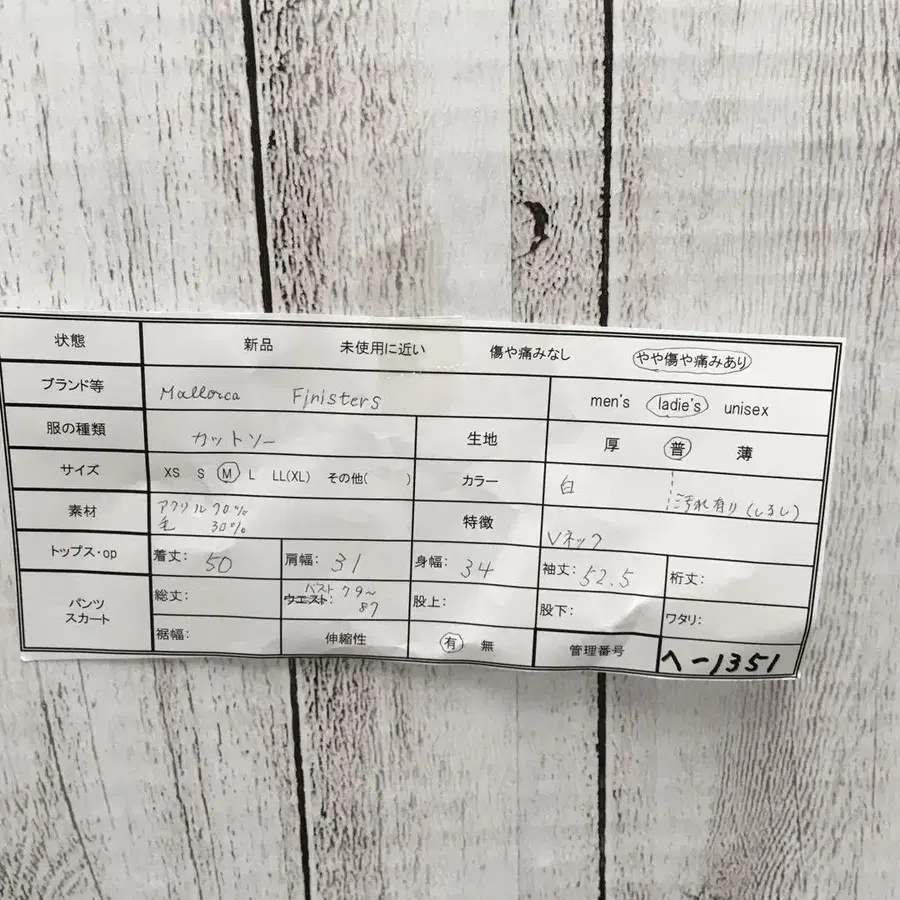 状態 新品 未使用に近い 傷や痛みなし やや傷や痛みあり
ブランド等 Mallorca Finisters men's ladie's unisex
服の種類 カットソー 生地 厚 普 薄
サイズ XS S M L LL(XL) その他( ) カラー 白 汚れ有り(しるし)
素材 アクリル70% 毛 30% 特徴 Vネック
トップス・op 着丈: 50 肩幅: 31 身幅: 34 袖丈: 52.5 裄丈:
パンツ スカート 総丈: ウエスト: バスト 79~87 股上: 股下: ワタリ:
裾幅: 伸縮性 有 無 管理番号 へー1351